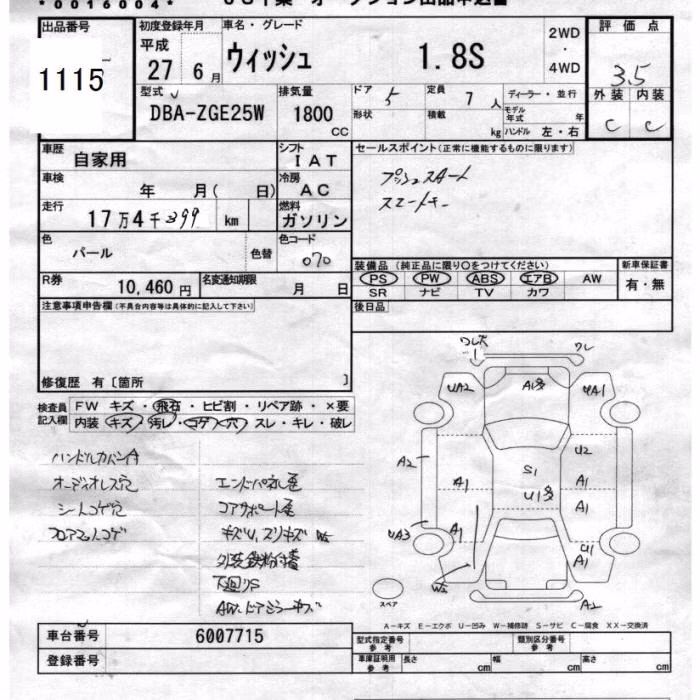 *0016004*
出品番号 初度登録年月 車名・グレード 2WD・4WD 評価点
1115 平成27 6月 ウィッシュ 1.8S 3.5
型式 DBA-ZGE25W 排気量 1800CC
ドア 5 定員 7人 ディーラー・並行 外装 内装
形状 積載 kg モデル年式 年 ハンドル 左・右 C C
車歴 自家用 シフト IAT セールスポイント(正常に機能するものに限ります)
車検 年 月( 日) 冷房 AC プッシュスタート
走行 17万4千399 km 燃料 ガソリン スマートキー
色 パール 色替 色コード 070
装備品(純正品に限り○をつけてください) 新車保証書
PS PW ABS エアB AW 有・無
SR ナビ TV カワ
R券 10,460円 名変通知期限 月 日
注意事項申告欄(不具合内容等は具体的に記入して下さい) 後日品
修復歴 有〔箇所 〕
検査員記入欄 FW キズ・飛石・ヒビ割・リペア跡・×要
内装 キズ・汚レ・コゲ・穴・スレ・キレ・破レ
ハンドルカバー付
オーディオレス穴 エンドパネル歪
シートコゲ穴 コアサポート歪
フロアマットコゲ キズU,スリキズ W2
外装鉄粉付着
下廻りS
AW.ドアミラーキズ
ワレ大 ワレ
UA2 A1多 UA1
A2 U2
A1 S1 A1
U1多 A1
UA3 A1 U1
A1
W2 A2
スペア
A-キズ E-エクボ U-凹み W-補修跡 S-サビ C-腐食 XX-交換済
車台番号 6007715 型式指定番号 参考 類別区分番号 参考
登録番号 車庫証明用 参考 長さ cm 幅 cm 高さ cm